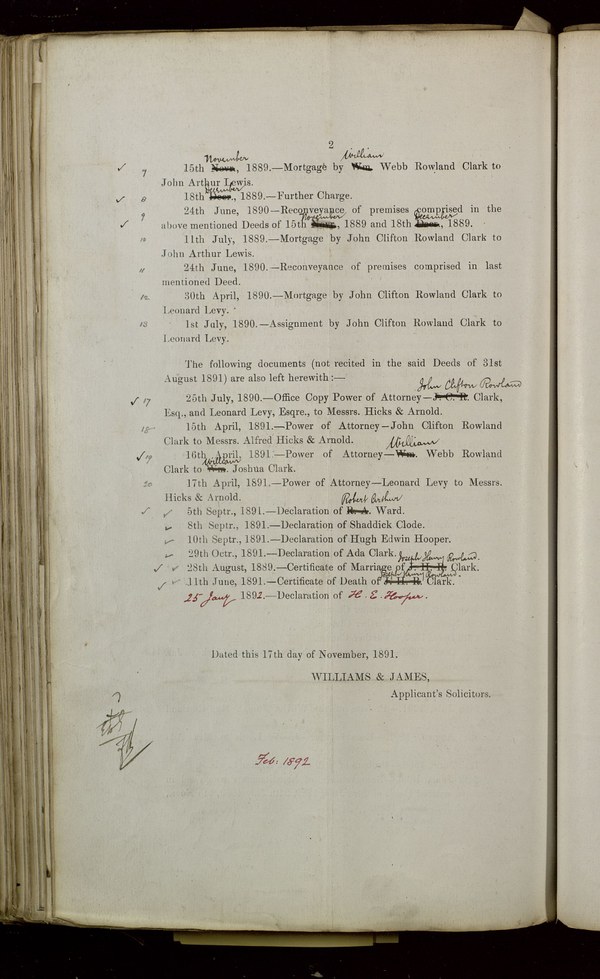 2
November William
7 15th Novr., 1889.—Mortgage by Wm. Webb Rowland Clark to
John Arthur Lewis.
December
8 18th Decr., 1889.—Further Charge.
9 24th June, 1890—Reconveyance of premises comprised in the
November December
above mentioned Deeds of 15th Novr., 1889 and 18th Decr., 1889.
10 11th July, 1889.—Mortgage by John Clifton Rowland Clark to
John Arthur Lewis.
11 24th June, 1890.—Reconveyance of premises comprised in last
mentioned Deed.
12 30th April, 1890.—Mortgage by John Clifton Rowland Clark to
Leonard Levy.
13 1st July, 1890.—Assignment by John Clifton Rowland Clark to
Leonard Levy.
The following documents (not recited in the said Deeds of 31st
August 1891) are also left herewith:—
John Clifton Rowland
17 25th July, 1890.—Office Copy Power of Attorney—J. C. R. Clark,
Esq., and Leonard Levy, Esqre., to Messrs. Hicks & Arnold.
18 15th April, 1891.—Power of Attorney—John Clifton Rowland
Clark to Messrs. Alfred Hicks & Arnold.
William
19 16th April, 1891.—Power of Attorney—Wm. Webb Rowland
William
Clark to Wm. Joshua Clark.
20 17th April, 1891.—Power of Attorney—Leonard Levy to Messrs.
Hicks & Arnold.
Robert Arthur
5th Septr., 1891.—Declaration of R. A. Ward.
8th Septr., 1891.—Declaration of Shaddick Clode.
10th Septr., 1891.—Declaration of Hugh Edwin Hooper.
29th Octr., 1891.—Declaration of Ada Clark.
Joseph Henry Rowland.
28th August, 1889.—Certificate of Marriage of J. H. R. Clark.
Joseph Henry Rowland.
11th June, 1891.—Certificate of Death of J. H. R. Clark.
25 Jany 1892.—Declaration of H. E. Hooper.
Dated this 17th day of November, 1891.
WILLIAMS & JAMES,
Applicant's Solicitors.
Feb. 1892